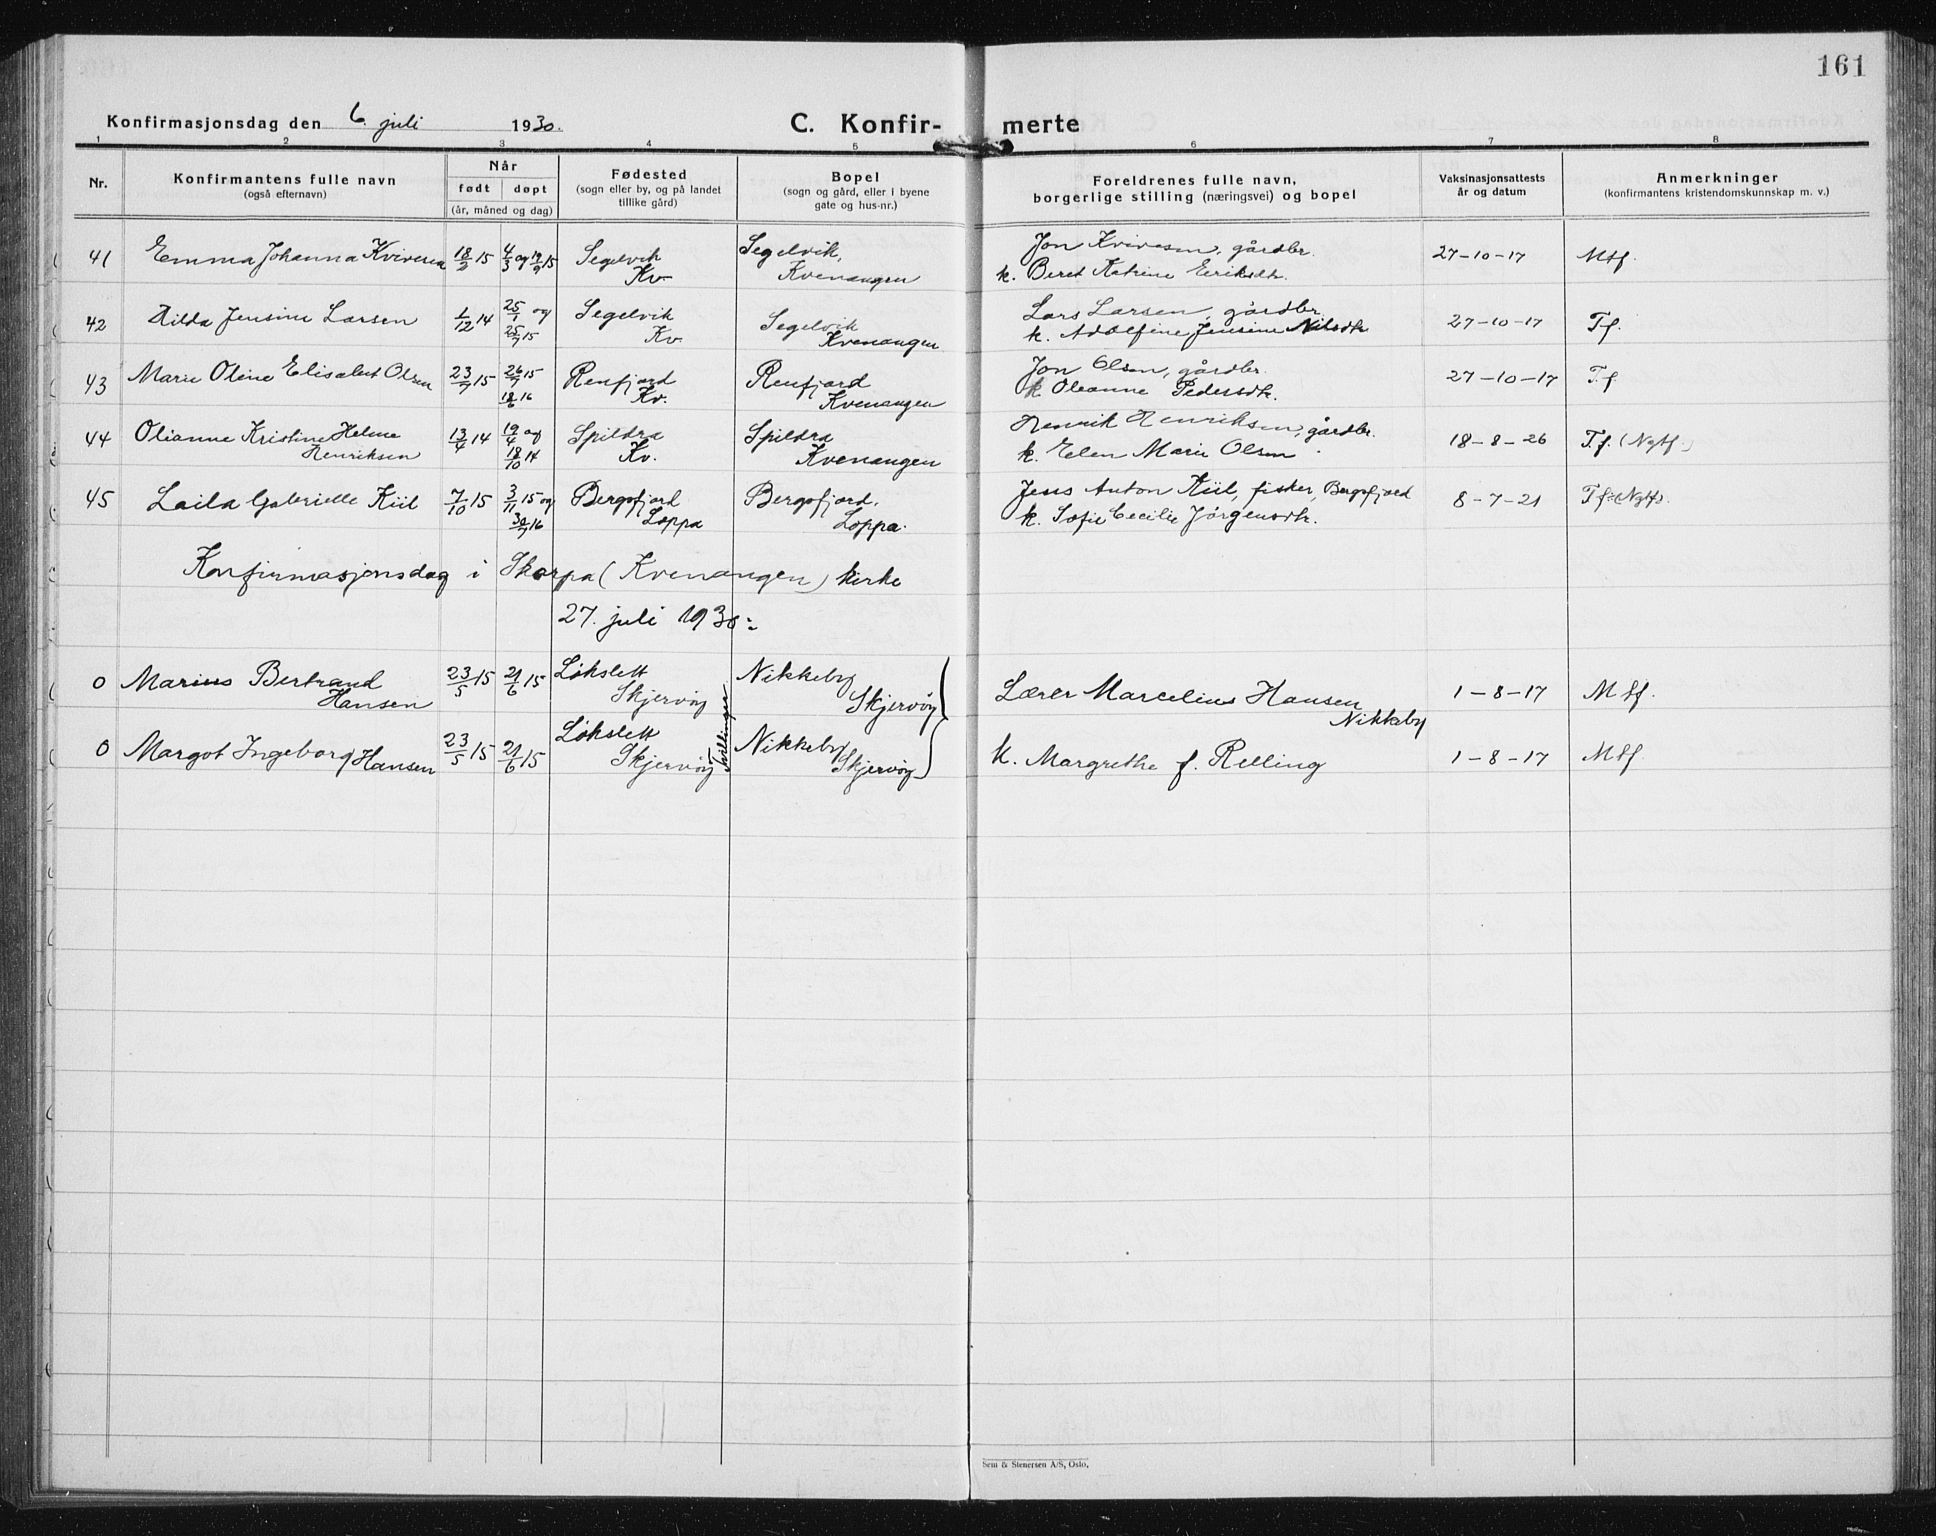 161
Konfirmasjonsdag den 6. juli 1930.
C. Konfir- merte
1 2 3 4 5 6 7 8
Nr.
Konfirmantens fulle navn
(også efternavn)
Når
født døpt
(år, måned og dag)
Fødested
(sogn eller by, og på landet
tillike gård)
Bopel
(sogn og gård, eller i byene
gate og hus-nr.)
Foreldrenes fulle navn,
borgerlige stilling (næringsvei) og bopel
Vaksinasjonsattests
år og datum
Anmerkninger
(konfirmantens kristendomskunnskap m. v.)
41 Emma Johanna Kviversen 18/2 15 4/3 og 19/9 15 Segelvik Segelvik, Jon Kviversen, gårdbr. 27-10-17 Mtf.
Kv. Kvenangen k. Beret Katrine Eriksdtr.
42 Hilda Jensine Larsen 1/12 14 25/1 og Segelvik Segelvik Lars Larsen, gårdbr. 27-10-17 Tf.
25/7 15 Kv. Kvenangen k. Adolfine Jensine Nilsdtr
43 Marie Oline Elisabet Olsen 23/7 15 26/7 15 Renfjord Renfjord Jon Olsen, gårdbr. 27-10-17 T.f
18/6 16 Kv. Kvenangen k Oleanne Pedersdtr.
44 Olianne Kristine Helene 13/4 14 19/4 og Spildra Spildra Henrik Henriksen, gårdbr. 18-8-26 T.f. (Ngtf.)
Henriksen 18/10 14 Kv. Kvenangen k. Elen Marie Olsen
45 Laila Gabrielle Kiil 7/10 15 3/11 15 og Bergsfjord Bergsfjord, Jens Anton Kiil, fisker, Bergsfjord 8-7-21 Tf. (Ngtf).
30/7 16 Loppa Loppa. k. Sofie Cecilie Jørgensdtr.
Konfirmasjonsdag i Skorpa (Kvenangen) kirke
27. juli 1930:
0 Marius Bertrand 23/5 15 21/6 15 Løkslett Nikkeby Lærer Marcelius Hansen 1-8-17 Mtf.
Hansen Skjervøy Skjervøy Nikkeby
Tvillinger
0 Margot Ingeborg Hansen 23/5 15 21/6 15 Løkslett Nikkeby k. Margrethe f. Relling 1-8-17 Mtf.
Skjervøy Skjervøy
Sem & Stenersen A/S, Oslo.